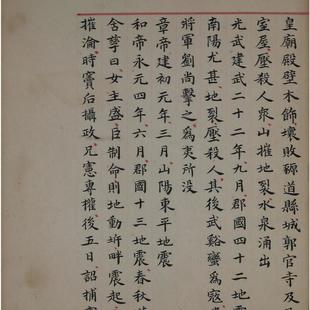 皇廟殿壁木飾壞敗豲道縣城郭官寺及
室屋壓殺人衆山摧地裂水泉涌出
光武建武二十二年九月郡國四十二地震
南陽尤甚地裂壓殺人其後武谿蠻為寇
將軍劉尚擊之為夷所没
章帝建初元年三月山陽東平地震
和帝永元四年六月郡國十三地震春秋
含孳曰女主盛臣制命則地動坼畔震起
摧淪時竇后攝政兄憲專權後五日詔捕